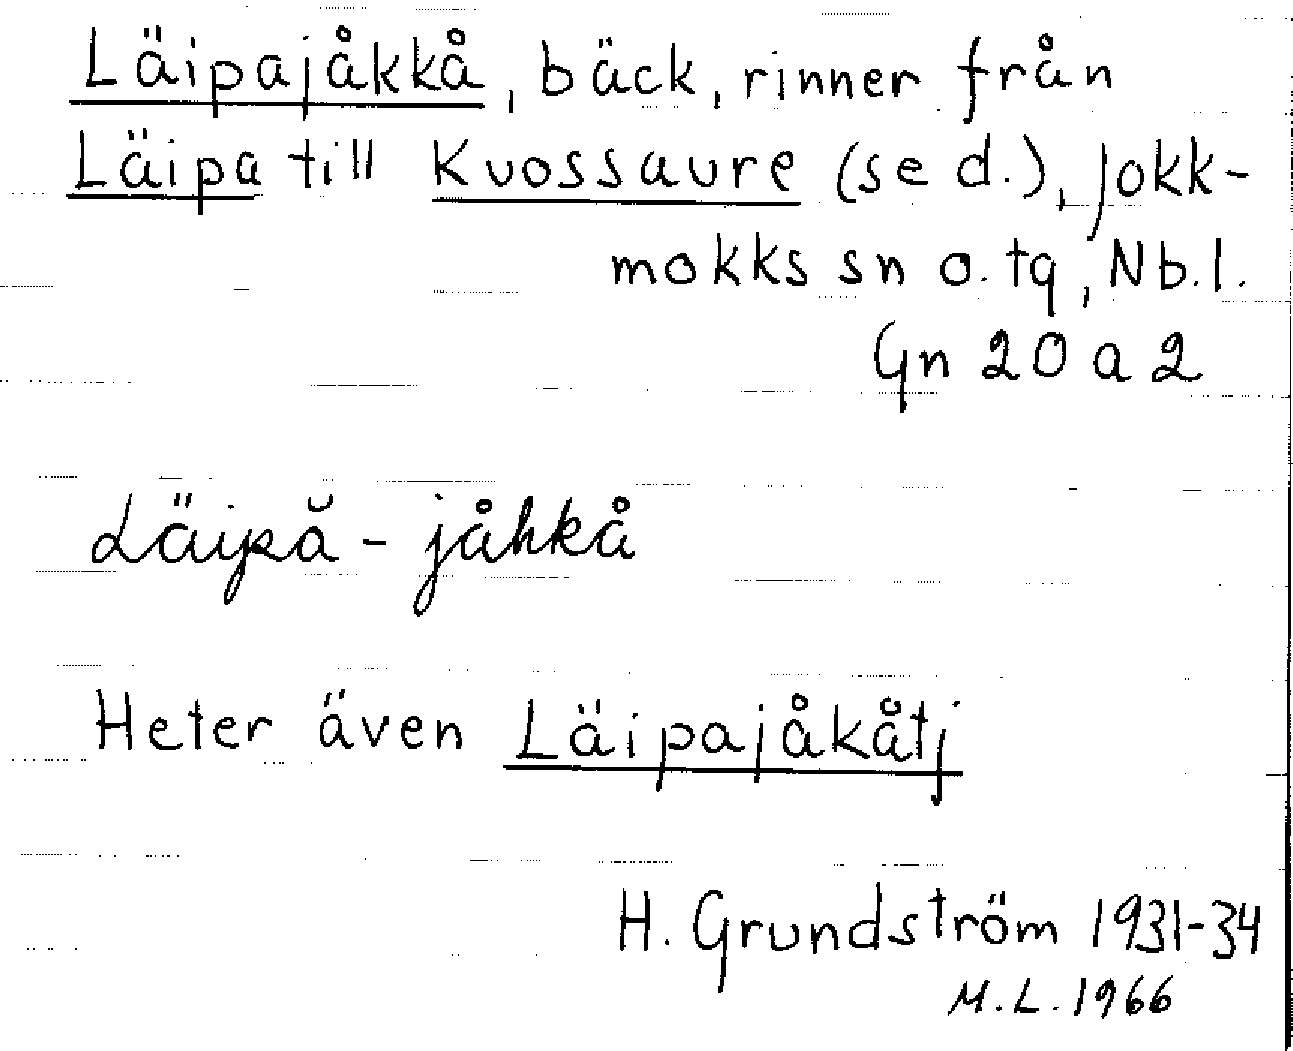 Läipajåkkå, bäck, rinner från
Läipa till Kuossaure (se d.), Jokk-
mokks sn o. tg, Nb.l.
Gn 20 a 2
Läipă - jåhkå
Heter även Läipajåkåtj
H. Grundström 1931-34
M.L. 1966